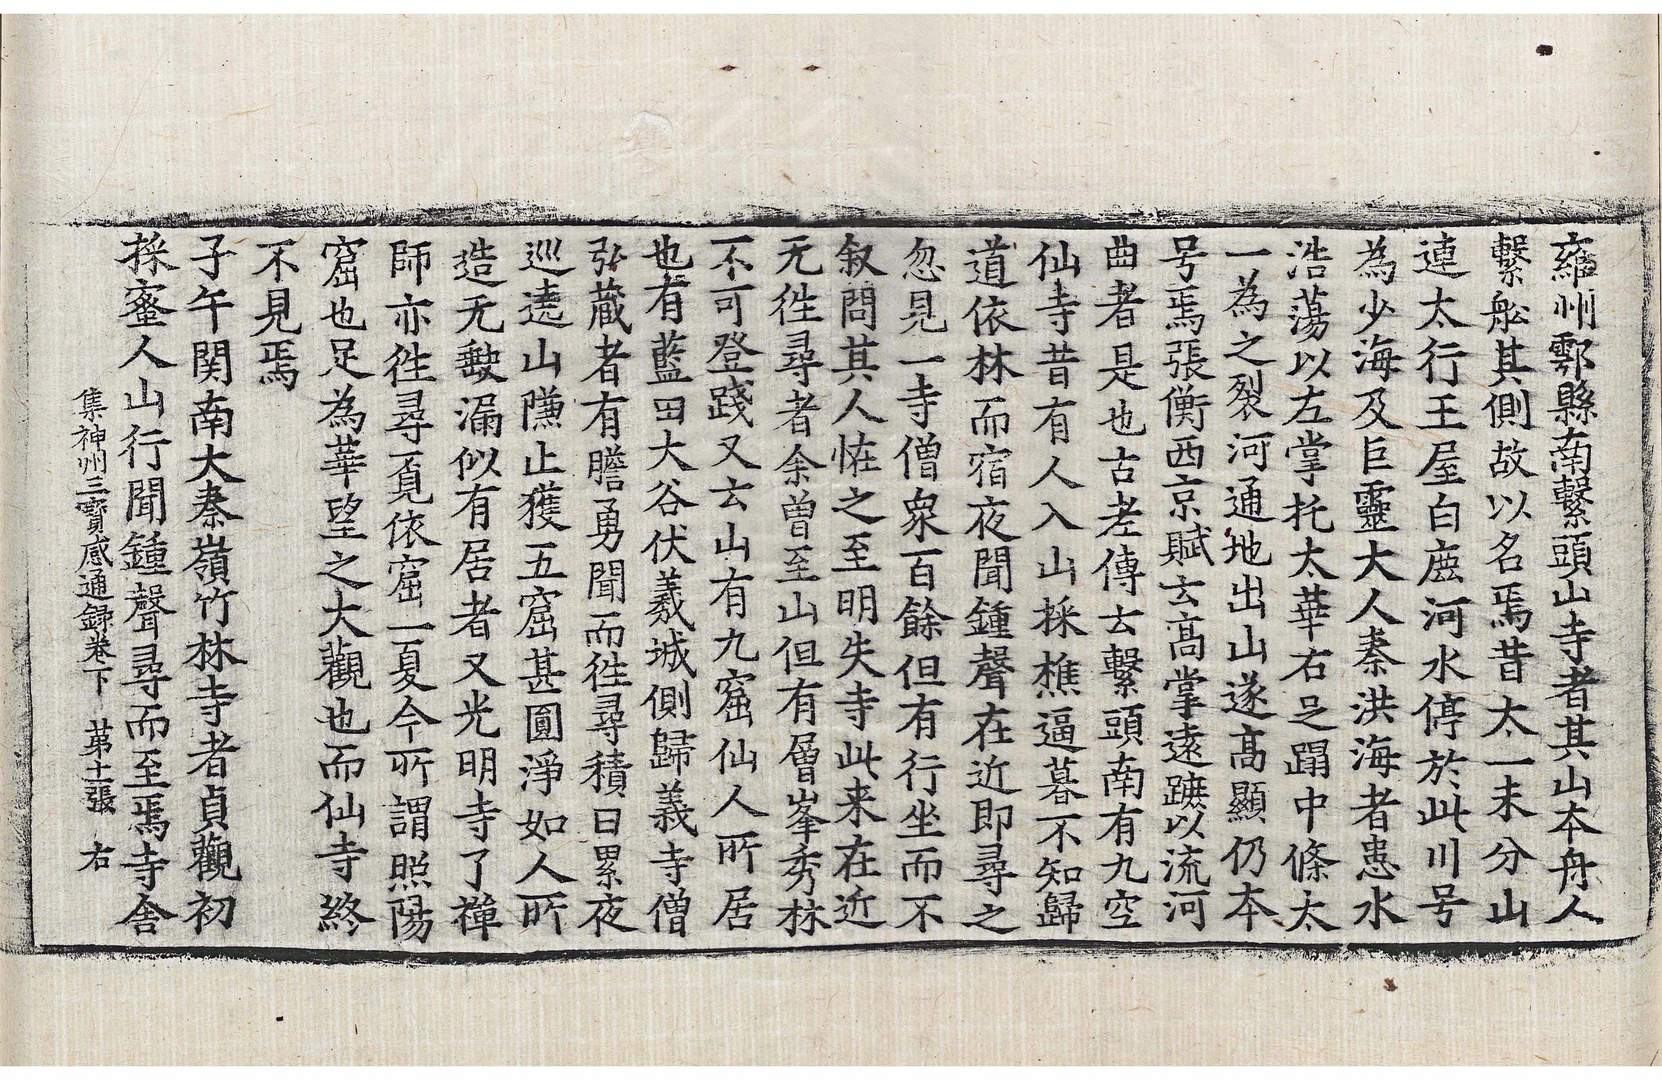 雍州鄠縣南繫頭山寺者其山本舟人
繫舩其側故以名焉昔太一未分山
連太行王屋白鹿河水停於此川号
為少海及巨靈大人秦洪海者患水
浩蕩以左掌托太華右足蹋中條太
一為之裂河通地出山遂高顯仍本
号焉張衡西京賦云高掌遠蹠以流河
曲者是也古老傳云繫頭南有九空
仙寺昔有人入山採樵逼暮不知歸
道依林而宿夜聞鍾聲在近即尋之
忽見一寺僧衆百餘但有行坐而不
叙問其人恠之至明失寺此来在近
无往尋者余曾至山但有層峯秀林
不可登踐又云山有九窟仙人所居
也有藍田大谷伏羲城側歸義寺僧
弘藏者有膽勇聞而往尋積日累夜
巡遶山隒止獲五窟甚圓淨如人所
造无㱿漏似有居者又光明寺了禪
師亦往尋覔依窟一夏今所謂照陽
窟也足為華望之大觀也而仙寺終
不見焉
子午関南大秦嶺竹林寺者貞觀初
採蜜人山行聞鍾聲尋而至焉寺舎
集神州三寶感通録卷下　苐十一張　右